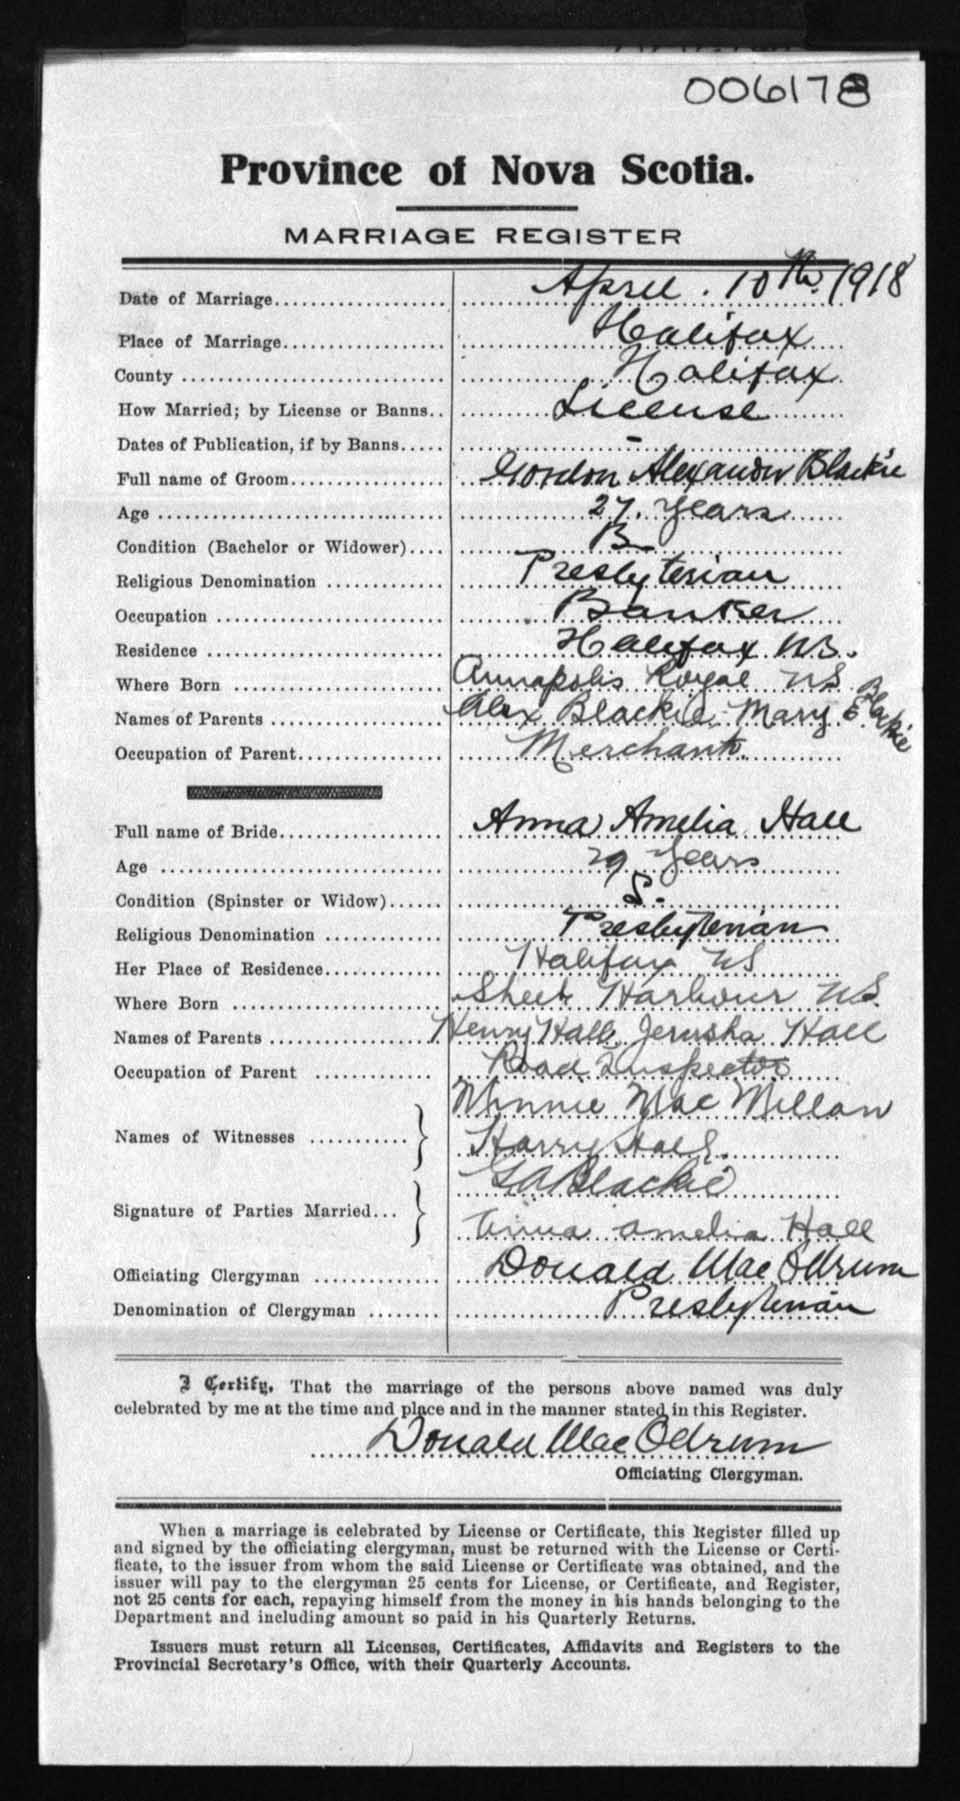 006178
Province of Nova Scotia.
MARRIAGE REGISTER
Date of Marriage.................. April. 10th. 1918
Place of Marriage................. Halifax
County ............................ Halifax
How Married; by License or Banns.. License
Dates of Publication, if by Banns..... -
Full name of Groom................ Gordon Alexander Blackie
Age ............................... 27. Years
Condition (Bachelor or Widower).... B
Religious Denomination ............ Presbyterian
Occupation ........................ Banker
Residence ......................... Halifax N.S.
Where Born ........................ Annapolis Royal NS
Names of Parents .................. Alex Blackie, Mary E. Blackie
Occupation of Parent............... Merchant.
Full name of Bride................. Anna Amelia Hall
Age ............................... 29 Years
Condition (Spinster or Widow)...... S.
Religious Denomination ............ Presbyterian
Her Place of Residence............. Halifax NS
Where Born ........................ Sheet Harbour NS.
Names of Parents .................. Henry Hall, Jerusha Hall
Occupation of Parent .............. Road Inspector
Names of Witnesses ........... } Winnie MacMillan
Harry Hall.
Signature of Parties Married... } G A Blackie
Anna Amelia Hall
Officiating Clergyman ............. Donald MacOdrum
Denomination of Clergyman ........ Presbyterian
I Certify, That the marriage of the persons above named was duly
celebrated by me at the time and place and in the manner stated in this Register.
Donald MacOdrum
Officiating Clergyman.
When a marriage is celebrated by License or Certificate, this Register filled up
and signed by the officiating clergyman, must be returned with the License or Certi-
ficate, to the issuer from whom the said License or Certificate was obtained, and the
issuer will pay to the clergyman 25 cents for License, or Certificate, and Register,
not 25 cents for each, repaying himself from the money in his hands belonging to the
Department and including amount so paid in his Quarterly Returns.
Issuers must return all Licenses, Certificates, Affidavits and Registers to the
Provincial Secretary's Office, with their Quarterly Accounts.